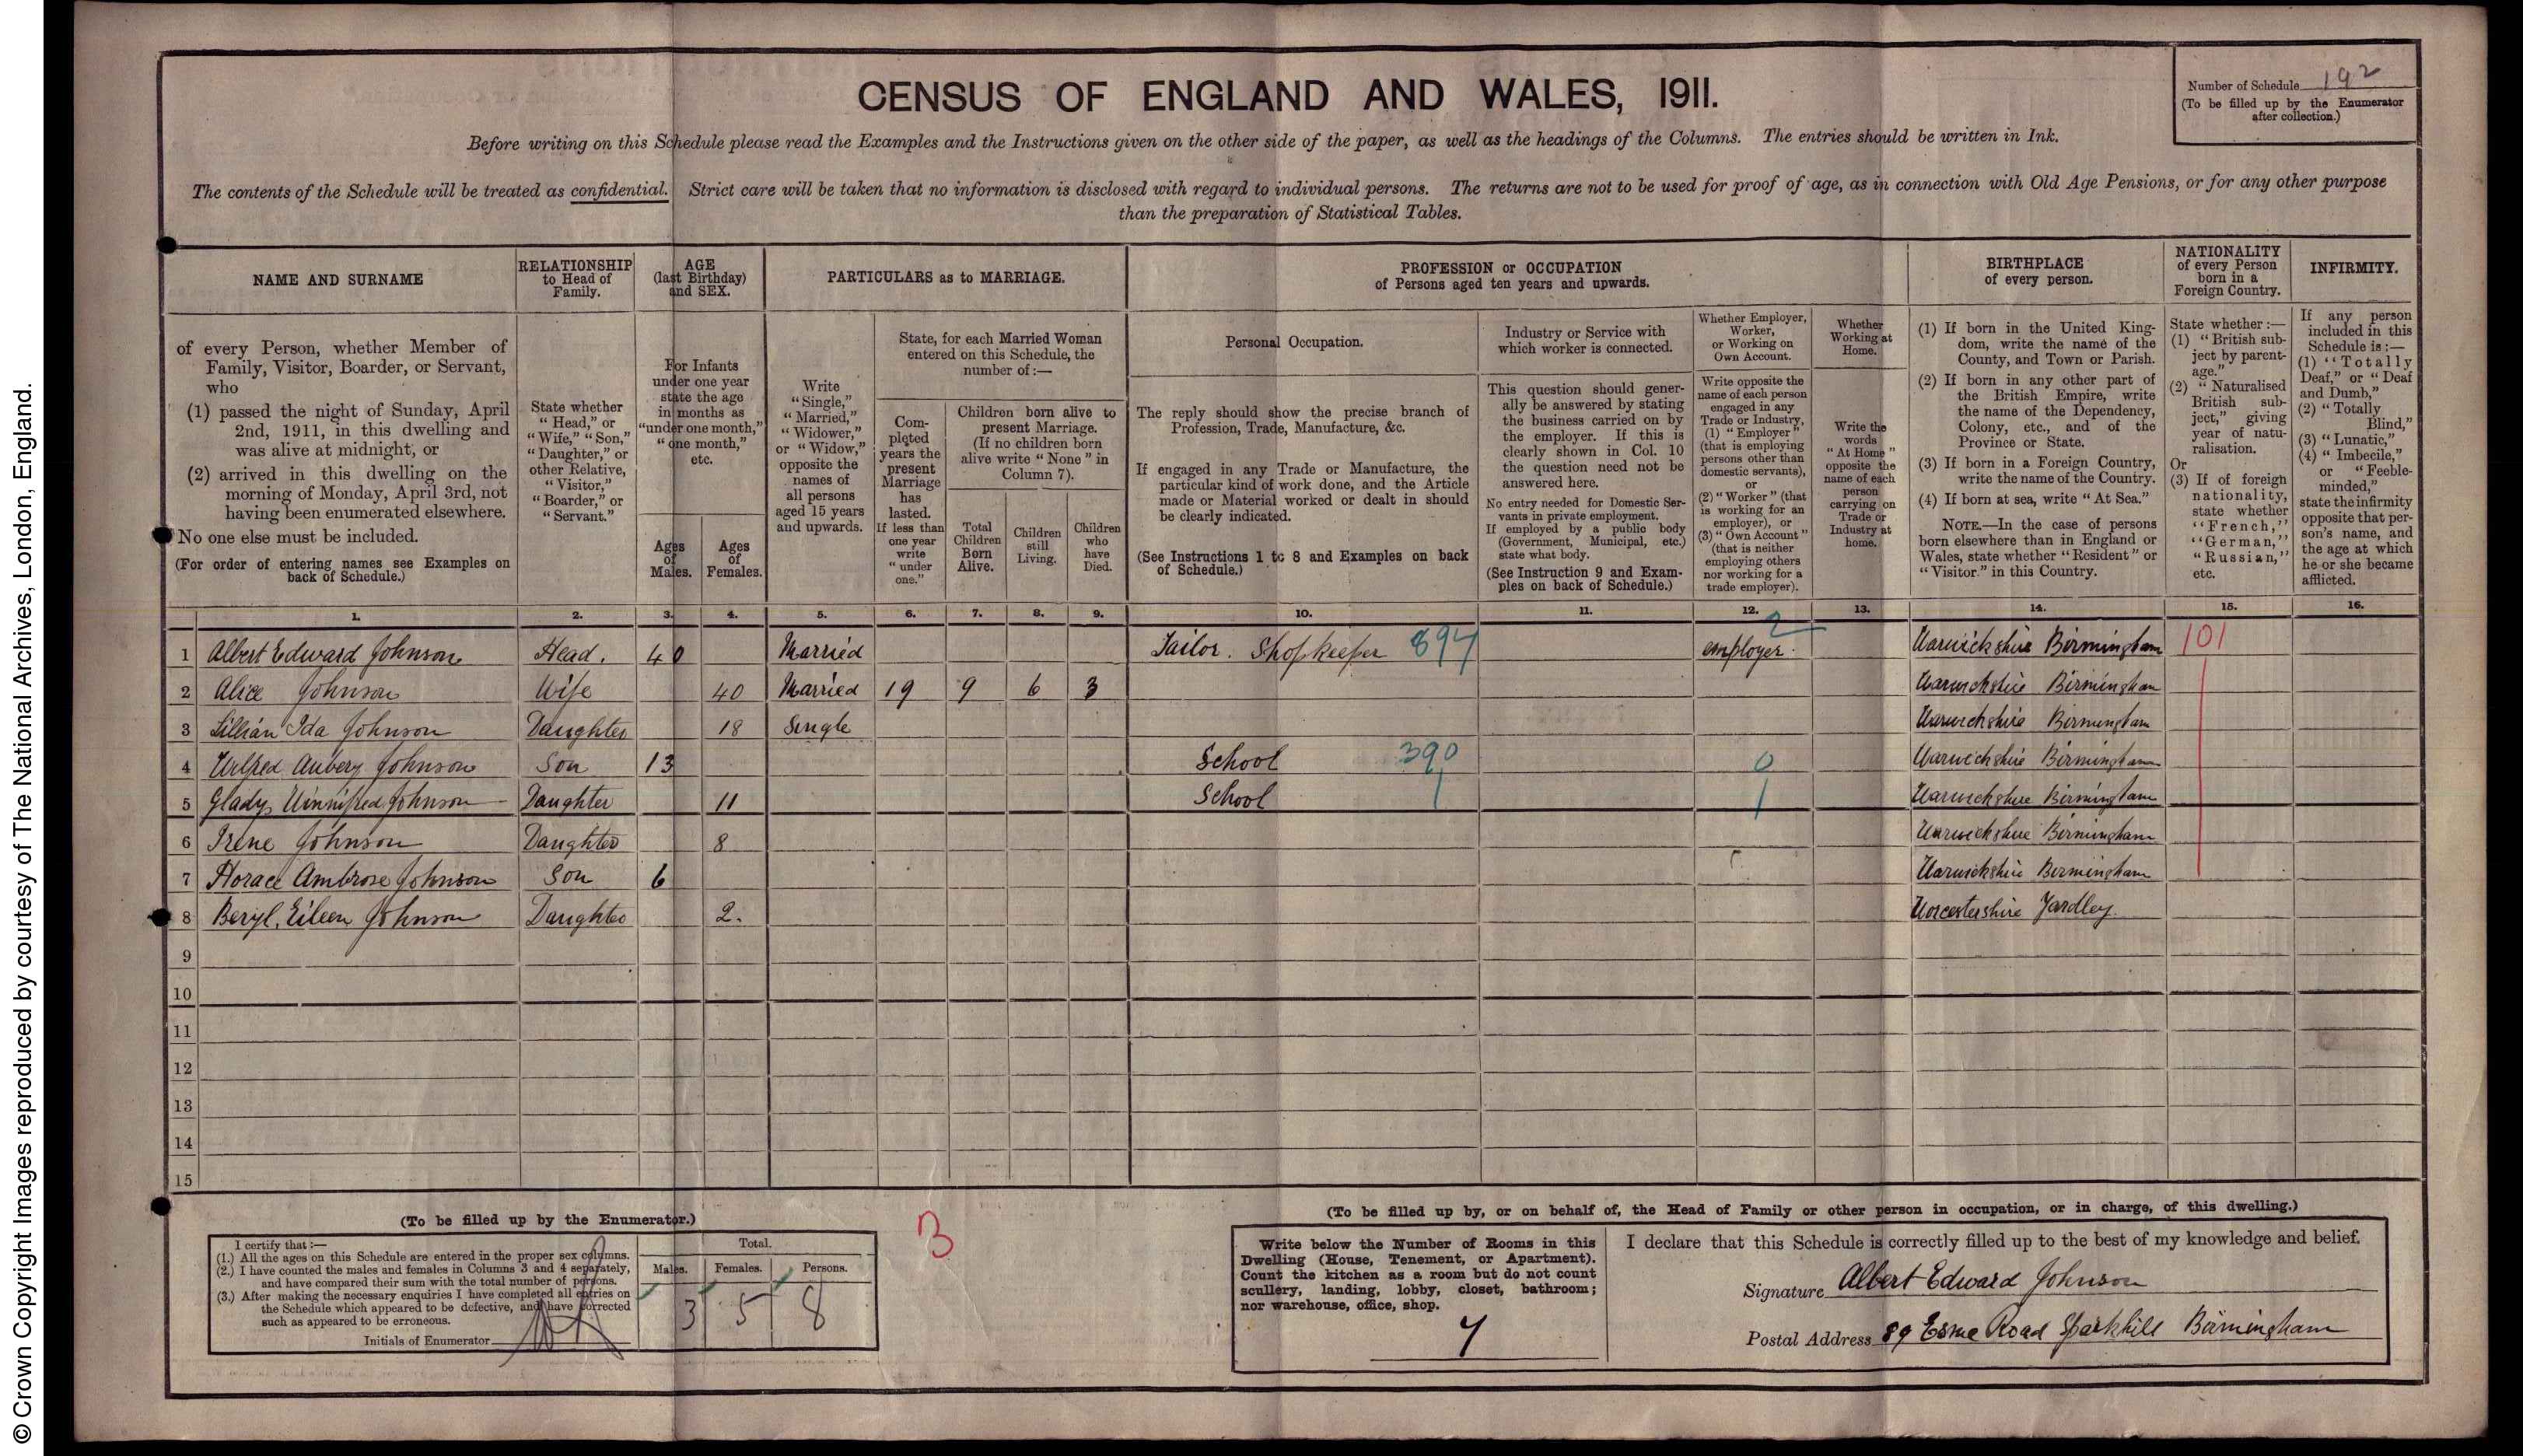 CENSUS OF ENGLAND AND WALES, 1911.
Number of Schedule 192
(To be filled up by the Enumerator
after collection.)
Before writing on this Schedule please read the Examples and the Instructions given on the other side of the paper, as well as the headings of the Columns. The entries should be written in Ink.
The contents of the Schedule will be treated as confidential. Strict care will be taken that no information is disclosed with regard to individual persons. The returns are not to be used for proof of age, as in connection with Old Age Pensions, or for any other purpose
than the preparation of Statistical Tables.
NAME AND SURNAME
of every Person, whether Member of
Family, Visitor, Boarder, or Servant,
who
(1) passed the night of Sunday, April
2nd, 1911, in this dwelling and
was alive at midnight, or
(2) arrived in this dwelling on the
morning of Monday, April 3rd, not
having been enumerated elsewhere.
No one else must be included.
(For order of entering names see Examples on
back of Schedule.)
RELATIONSHIP
to Head of
Family.
State whether
"Head," or
"Wife," "Son,"
"Daughter," or
other Relative,
"Visitor,"
"Boarder," or
"Servant."
AGE
(last Birthday)
and SEX.
For Infants
under one year
state the age
in months as
"under one month,"
"one month,"
etc.
Ages
of
Males.
Ages
of
Females.
PARTICULARS as to MARRIAGE.
Write
"Single,"
"Married,"
"Widower,"
or "Widow,"
opposite the
names of
all persons
aged 15 years
and upwards.
State, for each Married Woman
entered on this Schedule, the
number of:—
Com-
pleted
years the
present
Marriage
has
lasted.
If less than
one year
write
"under
one."
Children born alive to
present Marriage.
(If no children born
alive write "None" in
Column 7).
Total
Children
Born
Alive.
Children
still
Living.
Children
who
have
Died.
PROFESSION or OCCUPATION
of Persons aged ten years and upwards.
Personal Occupation.
The reply should show the precise branch of
Profession, Trade, Manufacture, &c.
If engaged in any Trade or Manufacture, the
particular kind of work done, and the Article
made or Material worked or dealt in should
be clearly indicated.
(See Instructions 1 to 8 and Examples on back
of Schedule.)
Industry or Service with
which worker is connected.
This question should gener-
ally be answered by stating
the business carried on by
the employer. If this is
clearly shown in Col. 10
the question need not be
answered here.
No entry needed for Domestic Ser-
vants in private employment.
If employed by a public body
(Government, Municipal, etc.)
state what body.
(See Instruction 9 and Exam-
ples on back of Schedule.)
Whether Employer,
Worker,
or Working on
Own Account.
Write opposite the
name of each person
engaged in any
Trade or Industry,
(1) "Employer"
(that is employing
persons other than
domestic servants),
or
(2) "Worker" (that
is working for an
employer), or
(3) "Own Account"
(that is neither
employing others
nor working for a
trade employer).
Whether
Working at
Home.
Write the
words
"At Home"
opposite the
name of each
person
carrying on
Trade or
Industry at
home.
BIRTHPLACE
of every person.
(1) If born in the United King-
dom, write the name of the
County, and Town or Parish.
(2) If born in any other part of
the British Empire, write
the name of the Dependency,
Colony, etc., and of the
Province or State.
(3) If born in a Foreign Country,
write the name of the Country.
(4) If born at sea, write "At Sea."
NOTE.—In the case of persons
born elsewhere than in England or
Wales, state whether "Resident" or
"Visitor" in this Country.
NATIONALITY
of every Person
born in a
Foreign Country.
State whether:—
(1) "British sub-
ject by parent-
age."
(2) "Naturalised
British sub-
ject," giving
year of natu-
ralisation.
Or
(3) If of foreign
nationality,
state whether
"French,"
"German,"
"Russian,"
etc.
INFIRMITY.
If any person
included in this
Schedule is:—
(1) "Totally
Deaf," or "Deaf
and Dumb,"
(2) "Totally
Blind,"
(3) "Lunatic,"
(4) "Imbecile,"
or "Feeble-
minded,"
state the infirmity
opposite that per-
son's name, and
the age at which
he or she became
afflicted.
1. 2. 3. 4. 5. 6. 7. 8. 9. 10. 11. 12. 13. 14. 15. 16.
2
1 Albert Edward Johnson Head. 40 Married Tailor. Shopkeeper 894 employer. Warwickshire Birmingham 101
2 Alice Johnson Wife 40 Married 19 9 6 3 Warwickshire Birmingham
3 Lillian Ida Johnson Daughter 18 Single Warwickshire Birmingham
4 Wilfred Aubery Johnson Son 13 School 390 0 Warwickshire Birmingham
5 Gladys Winnifred Johnson Daughter 11 School Warwickshire Birmingham
6 Irene Johnson Daughter 8 Warwickshire Birmingham
7 Horace Ambrose Johnson Son 6 Warwickshire Birmingham
8 Beryl Eileen Johnson Daughter 2. Worcestershire Yardley.
9
10
11
12
13
14
15
(To be filled up by the Enumerator.)
I certify that:—
(1.) All the ages on this Schedule are entered in the proper sex columns.
(2.) I have counted the males and females in Columns 3 and 4 separately,
and have compared their sum with the total number of persons.
(3.) After making the necessary enquiries I have completed all entries on
the Schedule which appeared to be defective, and have corrected
such as appeared to be erroneous.
Initials of Enumerator
Total.
Males. Females. Persons.
3 5 8
3
(To be filled up by, or on behalf of, the Head of Family or other person in occupation, or in charge, of this dwelling.)
Write below the Number of Rooms in this
Dwelling (House, Tenement, or Apartment).
Count the kitchen as a room but do not count
scullery, landing, lobby, closet, bathroom;
nor warehouse, office, shop.
7
I declare that this Schedule is correctly filled up to the best of my knowledge and belief.
Signature Albert Edward Johnson
Postal Address 89 Esme Road Sparkhill Birmingham
© Crown Copyright Images reproduced by courtesy of The National Archives, London, England.